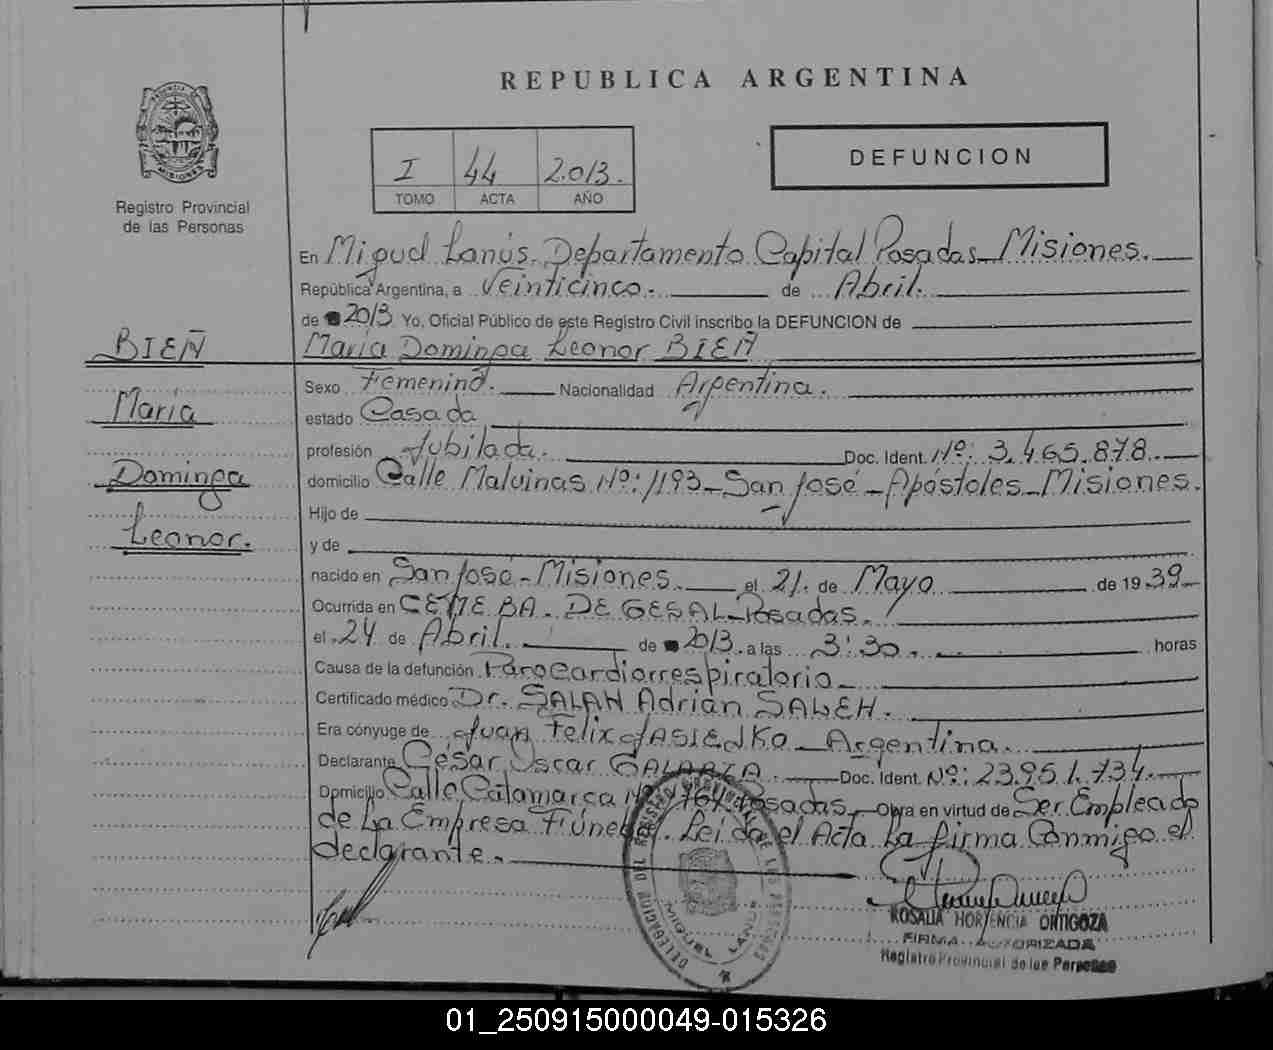 REPUBLICA ARGENTINA
PROVINCIA DE
MISIONES
Registro Provincial
de las Personas
I 44 2.013.
TOMO ACTA AÑO
DEFUNCION
En Miguel Lanús. Departamento Capital Posadas_Misiones.
República Argentina, a Veinticinco. de Abril.
de 2013 Yo, Oficial Público de este Registro Civil inscribo la DEFUNCION de
BIEÑ
María Dominga Leonor BIEÑ
Sexo Femenino. Nacionalidad Argentina.
María
estado Casada
profesión Jubilada. Doc. Ident. Nº: 3.465.878.
Dominga
domicilio Calle Malvinas Nº: 1193_San José_Apóstoles_Misiones.
Hijo de
Leonor.
y de
nacido en San José_Misiones. el 21. de Mayo de 1939
Ocurrida en CEMEBA. DE GESAL_Posadas.
el 24 de Abril. de 2013. a las 3:30. horas
Causa de la defunción Paro Cardiorrespiratorio_
Certificado médico Dr. Adrián SALEH.
Era cónyuge de Juan Felix JASIENKO_Argentina.
Declarante César Oscar GALARZA. Doc. Ident. Nº: 23.951.734.
Domicilio Calle Catamarca Posadas_Obra en virtud de Ser Empleado
de La Empresa Leida el Acta La firma Conmigo el
declarante.
DELEGACION DEL REGISTRO PROVINCIAL DE LAS PERSONAS
MIGUEL LANUS
ROSALIA HORTENCIA ORTIGOZA
FIRMA AUTORIZADA
Registro Provincial de las Personas
01_250915000049-015326